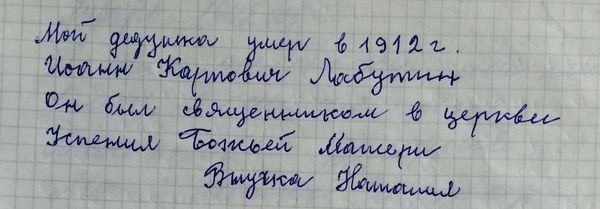 Мой дедушка умер в 1912 г.
Иоанн Карпович Лабутин
Он был священником в церкви
Успения Божьей Матери
Внучка Наталия